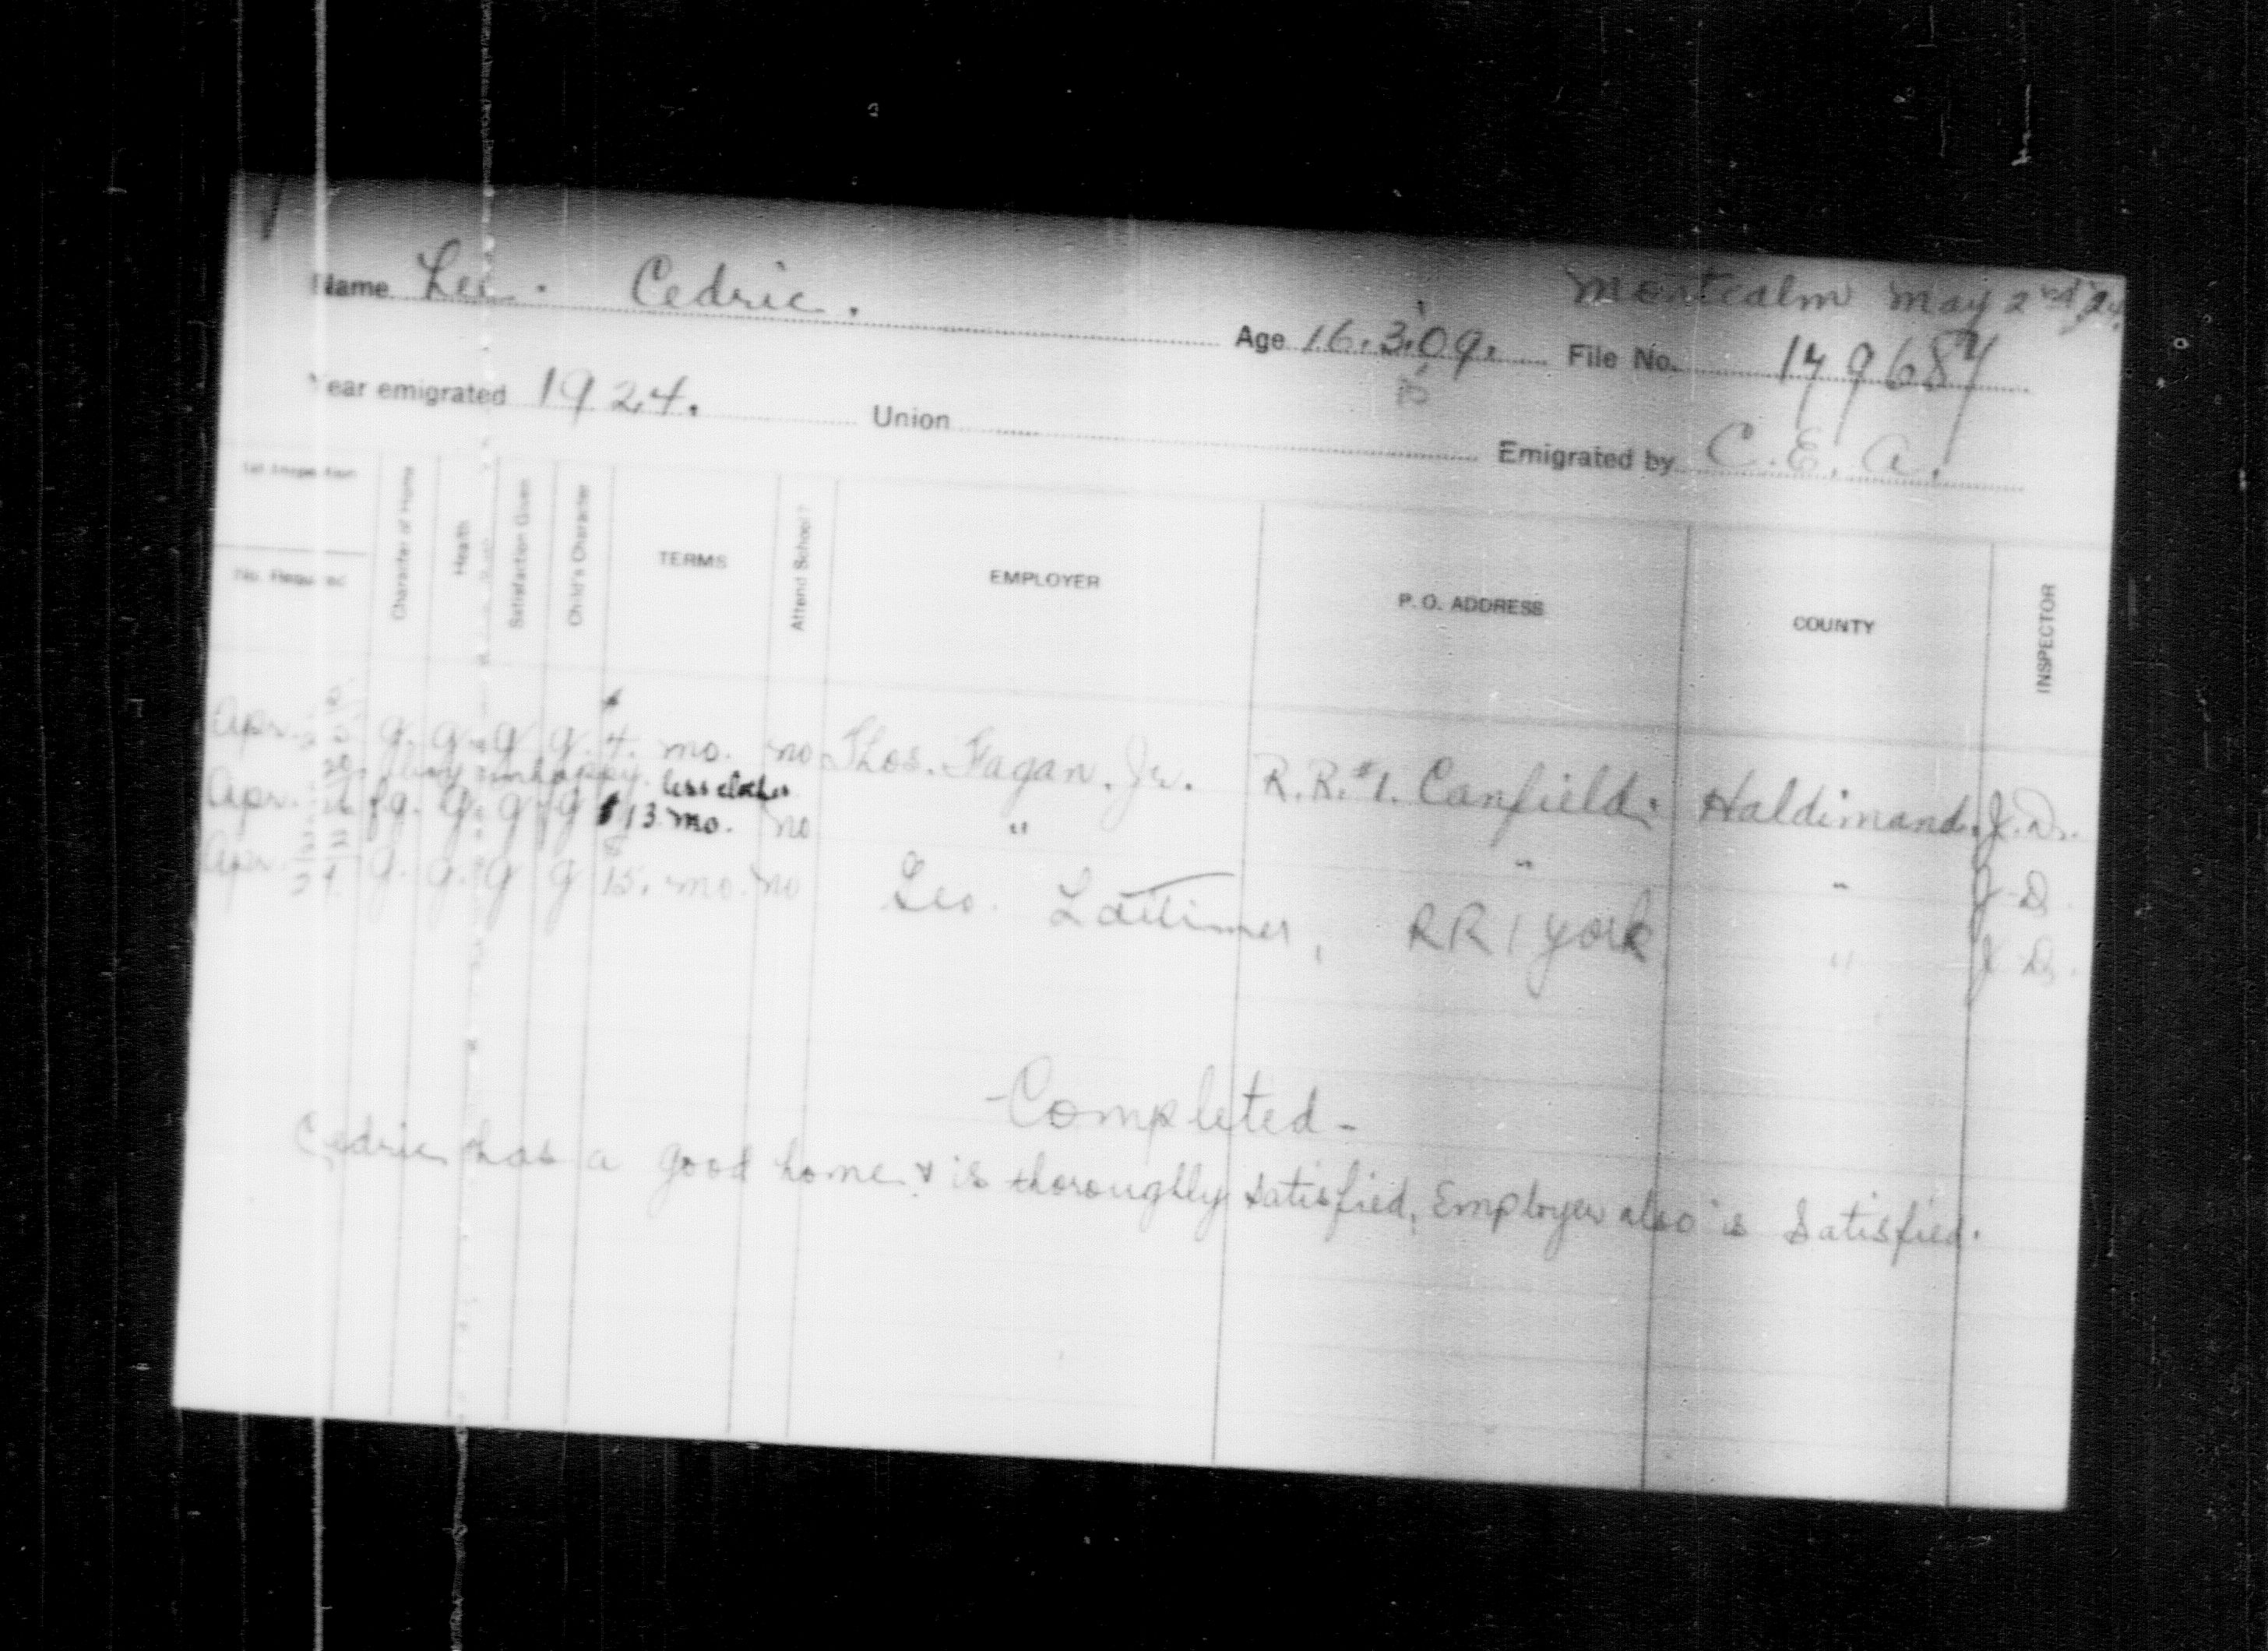 Montcalm May 2nd 24.
Name Lee. Cedric.
Age 16.3.09. File No. 149684
15
Year emigrated 1924. Union
Emigrated by C. E. A.
1st Inspection
No. Required
Character of Home
Health
Satisfaction Given
Child's Character
TERMS
Attend School?
EMPLOYER
P. O. ADDRESS
COUNTY
INSPECTOR
Apr. g. g. g g. $ 4. mo. no Thos. Fagan. Jr. R.R.#1. Canfield. Haldimand. J.D.
boy unhappy. less clothes
Apr. fg. g. g fg $13 mo. no " " " J.D.
Apr. g. g. g g 15. mo. no Geo. Lattimer, RR 1 York " J D.
- Completed -
Cedric has a good home & is thoroughly satisfied, Employer also is satisfied.